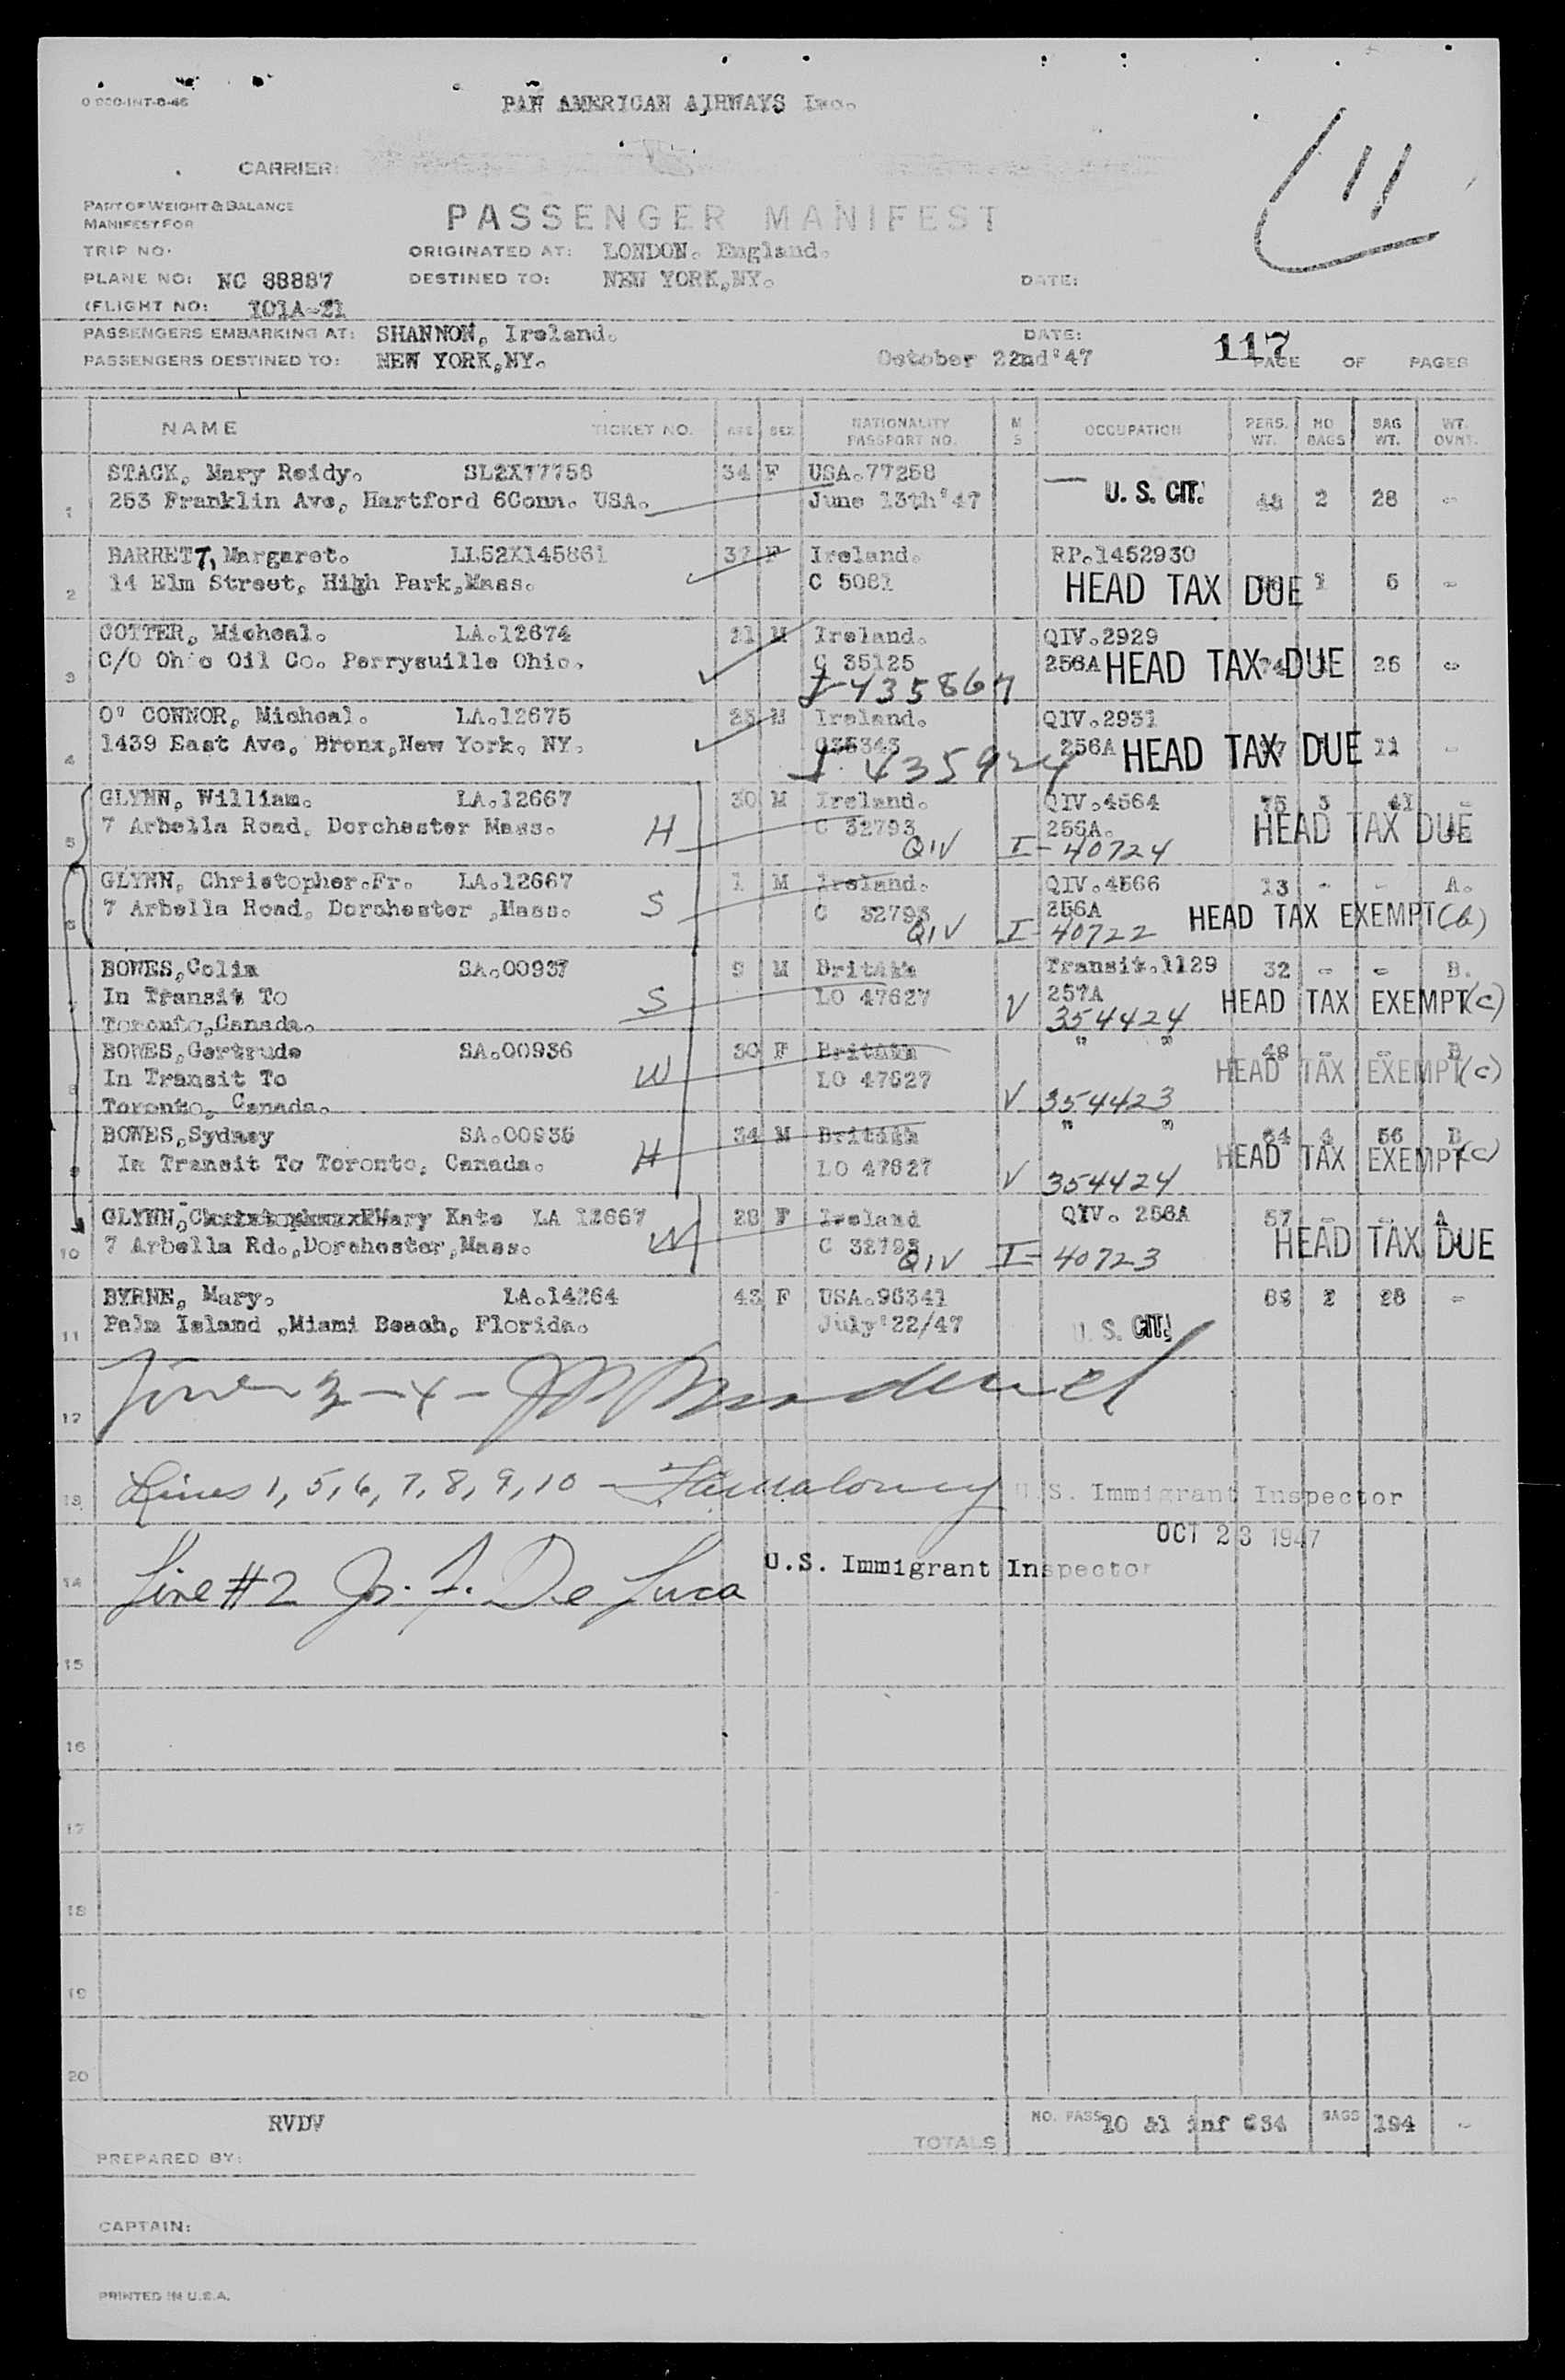 PAN AMERICAN AIRWAYS Inc.
CARRIER:
PART OF WEIGHT & BALANCE
MANIFEST FOR
PASSENGER MANIFEST
TRIP NO.
ORIGINATED AT: LONDON. England.
PLANE NO: NC 88887 DESTINED TO: NEW YORK,NY. DATE:
(FLIGHT NO: 101A-21
PASSENGERS EMBARKING AT: SHANNON, Ireland. DATE:
PASSENGERS DESTINED TO: NEW YORK,NY. October 22nd'47 117 PAGE OF PAGES
NAME TICKET NO. AGE SEX NATIONALITY PASSPORT NO. M S OCCUPATION PERS. WT. NO BAGS BAG WT. WT. OVNT.
STACK, Mary Reidy. SL2X77758 34 F USA.77258
1 253 Franklin Ave, Hartford 6Conn. USA. June 13th'47 U. S. CIT. 2 28 -
BARRETT, Margaret. LL52X145861 37 F Ireland. RP.1452930
2 14 Elm Street, High Park,Mass. C 5081 HEAD TAX DUE 1 6 -
COTTER, Micheal. LA.12674 21 M Ireland. QIV.2929
3 C/O Ohio Oil Co. Perrysuille Ohio. C 35125 256A HEAD TAX DUE 26 -
I-435867
O' CONNOR, Micheal. LA.12675 25 M Ireland. QIV.2931
4 1439 East Ave, Bronx,New York, NY. C35343 256A HEAD TAX DUE 11 -
I 435924
GLYNN, William. LA.12667 30 M Ireland. QIV.4564 75 3 41 -
5 7 Arbella Road, Dorchester Mass. H C 32793 256A. HEAD TAX DUE
QIV I-40724
GLYNN, Christopher.Fr. LA.12667 1 M Ireland. QIV.4566 13 - - A.
6 7 Arbella Road, Dorchester ,Mass. S C 32793 256A HEAD TAX EXEMPT (b)
QIV I-40722
BOWES,Colin SA.00937 9 M British Transit.1129 32 - - B.
In Transit To S LO 47627 V 257A HEAD TAX EXEMPT (c)
Toronto,Canada. 354424
BOWES,Gertrude SA.00936 30 F British " " 49 - - B
8 In Transit To W LO 47627 HEAD TAX EXEMPT (c)
Toronto, Canada. V 354423
BOWES,Sydney SA.00935 34 M British " " 84 4 56 B
9 In Transit To Toronto, Canada. H LO 47627 V 354424 HEAD TAX EXEMPT (c)
GLYNN, Mary Kate LA 12667 28 F Ireland QIV. 256A 57 - - A
10 7 Arbella Rd.,Dorchester,Mass. W C 32793 HEAD TAX DUE
QIV I-40723
BYRNE, Mary. LA.14264 43 F USA.96341 2 28 -
11 Palm Island ,Miami Beach, Florida. July'22/47 U. S. CIT.
12 3-4-
13 Lines 1, 5, 6, 7, 8, 9, 10 - U.S. Immigrant Inspector
OCT 23 1947
14 Line #2 De Luca U.S. Immigrant Inspector
15
16
17
18
19
20
RVDV NO. PASS 10 &1 inf 634 BAGS 194 -
TOTALS
PREPARED BY:
CAPTAIN:
PRINTED IN U.S.A.